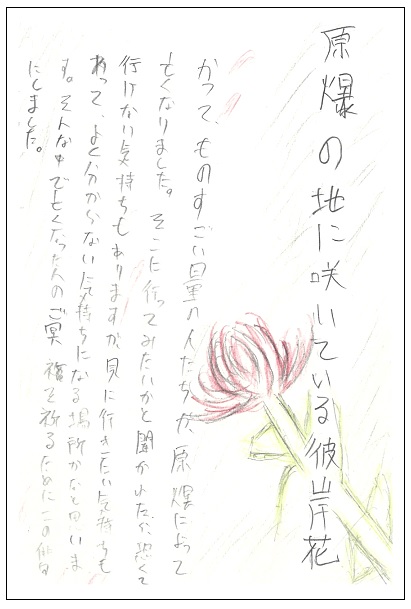 原爆の地に咲いている彼岸花
かつて、ものすごい量の人たちが、原爆によって
亡くなりました。そこに行ってみたいかと聞かれたら、恐くて
行けない気持ちもありますが、見に行きたい気持ちも
あって、よく分からない気持ちになる場所かなと思いま
す。そんな中で亡くなった人のご冥福を祈るためにこの俳句
にしました。